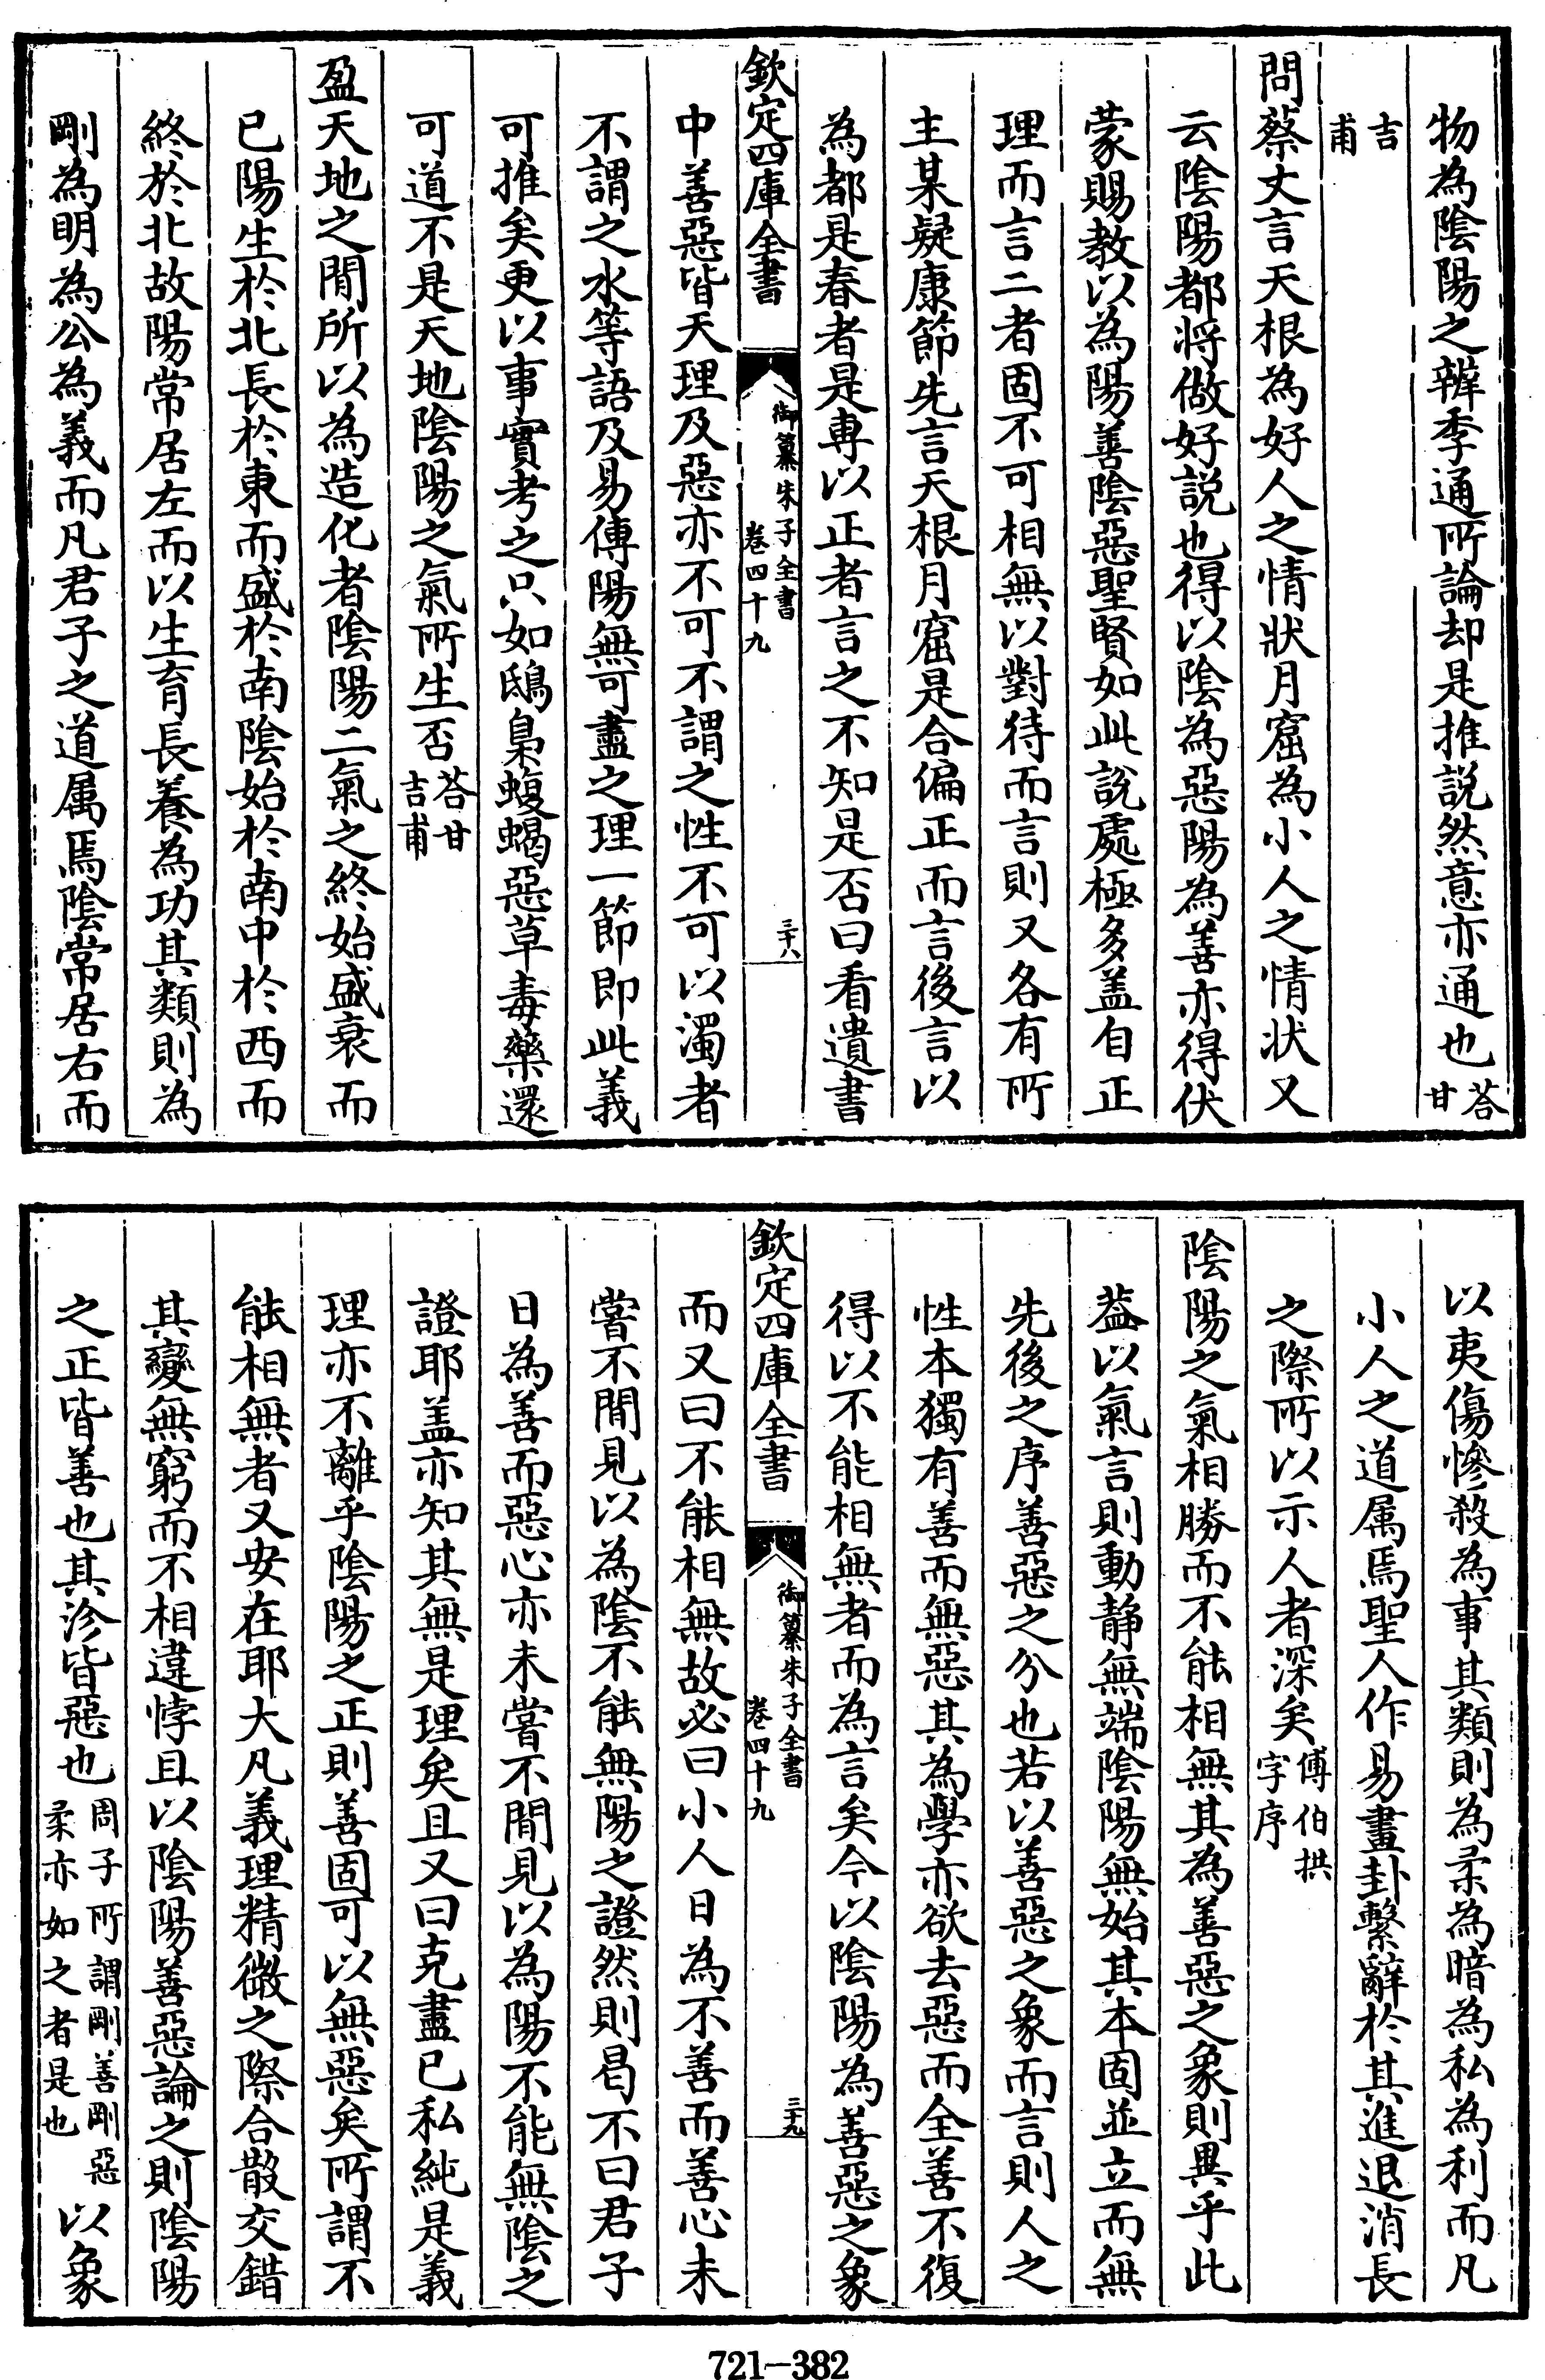 物為陰陽之辨季通所論却是推説然意亦通也荅甘
吉甫
問蔡丈言天根為好人之情狀月窟為小人之情狀又
云陰陽都將做好説也得以陰為惡陽為善亦得伏
蒙賜教以為陽善陰惡聖賢如此説處極多盖自正
理而言二者固不可相無以對待而言則又各有所
主某疑康節先言天根月窟是合偏正而言後言以
為都是春者是專以正者言之不知是否曰看遺書
欽定四庫全書
御纂朱子全書
卷四十九
三十八
中善惡皆天理及惡亦不可不謂之性不可以濁者
不謂之水等語及易傳陽無可盡之理一節即此義
可推矣更以事實考之只如鴟梟蝮蝎惡草毒藥還
可道不是天地陰陽之氣所生否荅甘吉甫
盈天地之間所以為造化者陰陽二氣之終始盛衰而
已陽生於北長於東而盛於南陰始於南中於西而
終於北故陽常居左而以生育長養為功其類則為
剛為明為公為義而凡君子之道属焉陰常居右而
以夷傷慘殺為事其類則為柔為暗為私為利而凡
小人之道属焉聖人作易畫卦繫辭於其進退消長
之際所以示人者深矣傅伯拱字序
陰陽之氣相勝而不能相無其為善惡之象則異乎此
蓋以氣言則動靜無端陰陽無始其本固並立而無
先後之序善惡之分也若以善惡之象而言則人之
性本獨有善而無惡其為學亦欲去惡而全善不復
得以不能相無者而為言矣今以陰陽為善惡之象
欽定四庫全書
御纂朱子全書
卷四十九
三十九
而又曰不能相無故必曰小人日為不善而善心未
嘗不間見以為陰不能無陽之證然則曷不曰君子
日為善而惡心亦未嘗不間見以為陽不能無陰之
證耶盖亦知其無是理矣且又曰克盡已私純是義
理亦不離乎陰陽之正則善固可以無惡矣所謂不
能相無者又安在耶大凡義理精微之際合散交錯
其變無窮而不相違悖且以陰陽善惡論之則陰陽
之正皆善也其沴皆惡也周子所謂剛善剛惡柔亦如之者是也以象
721-382